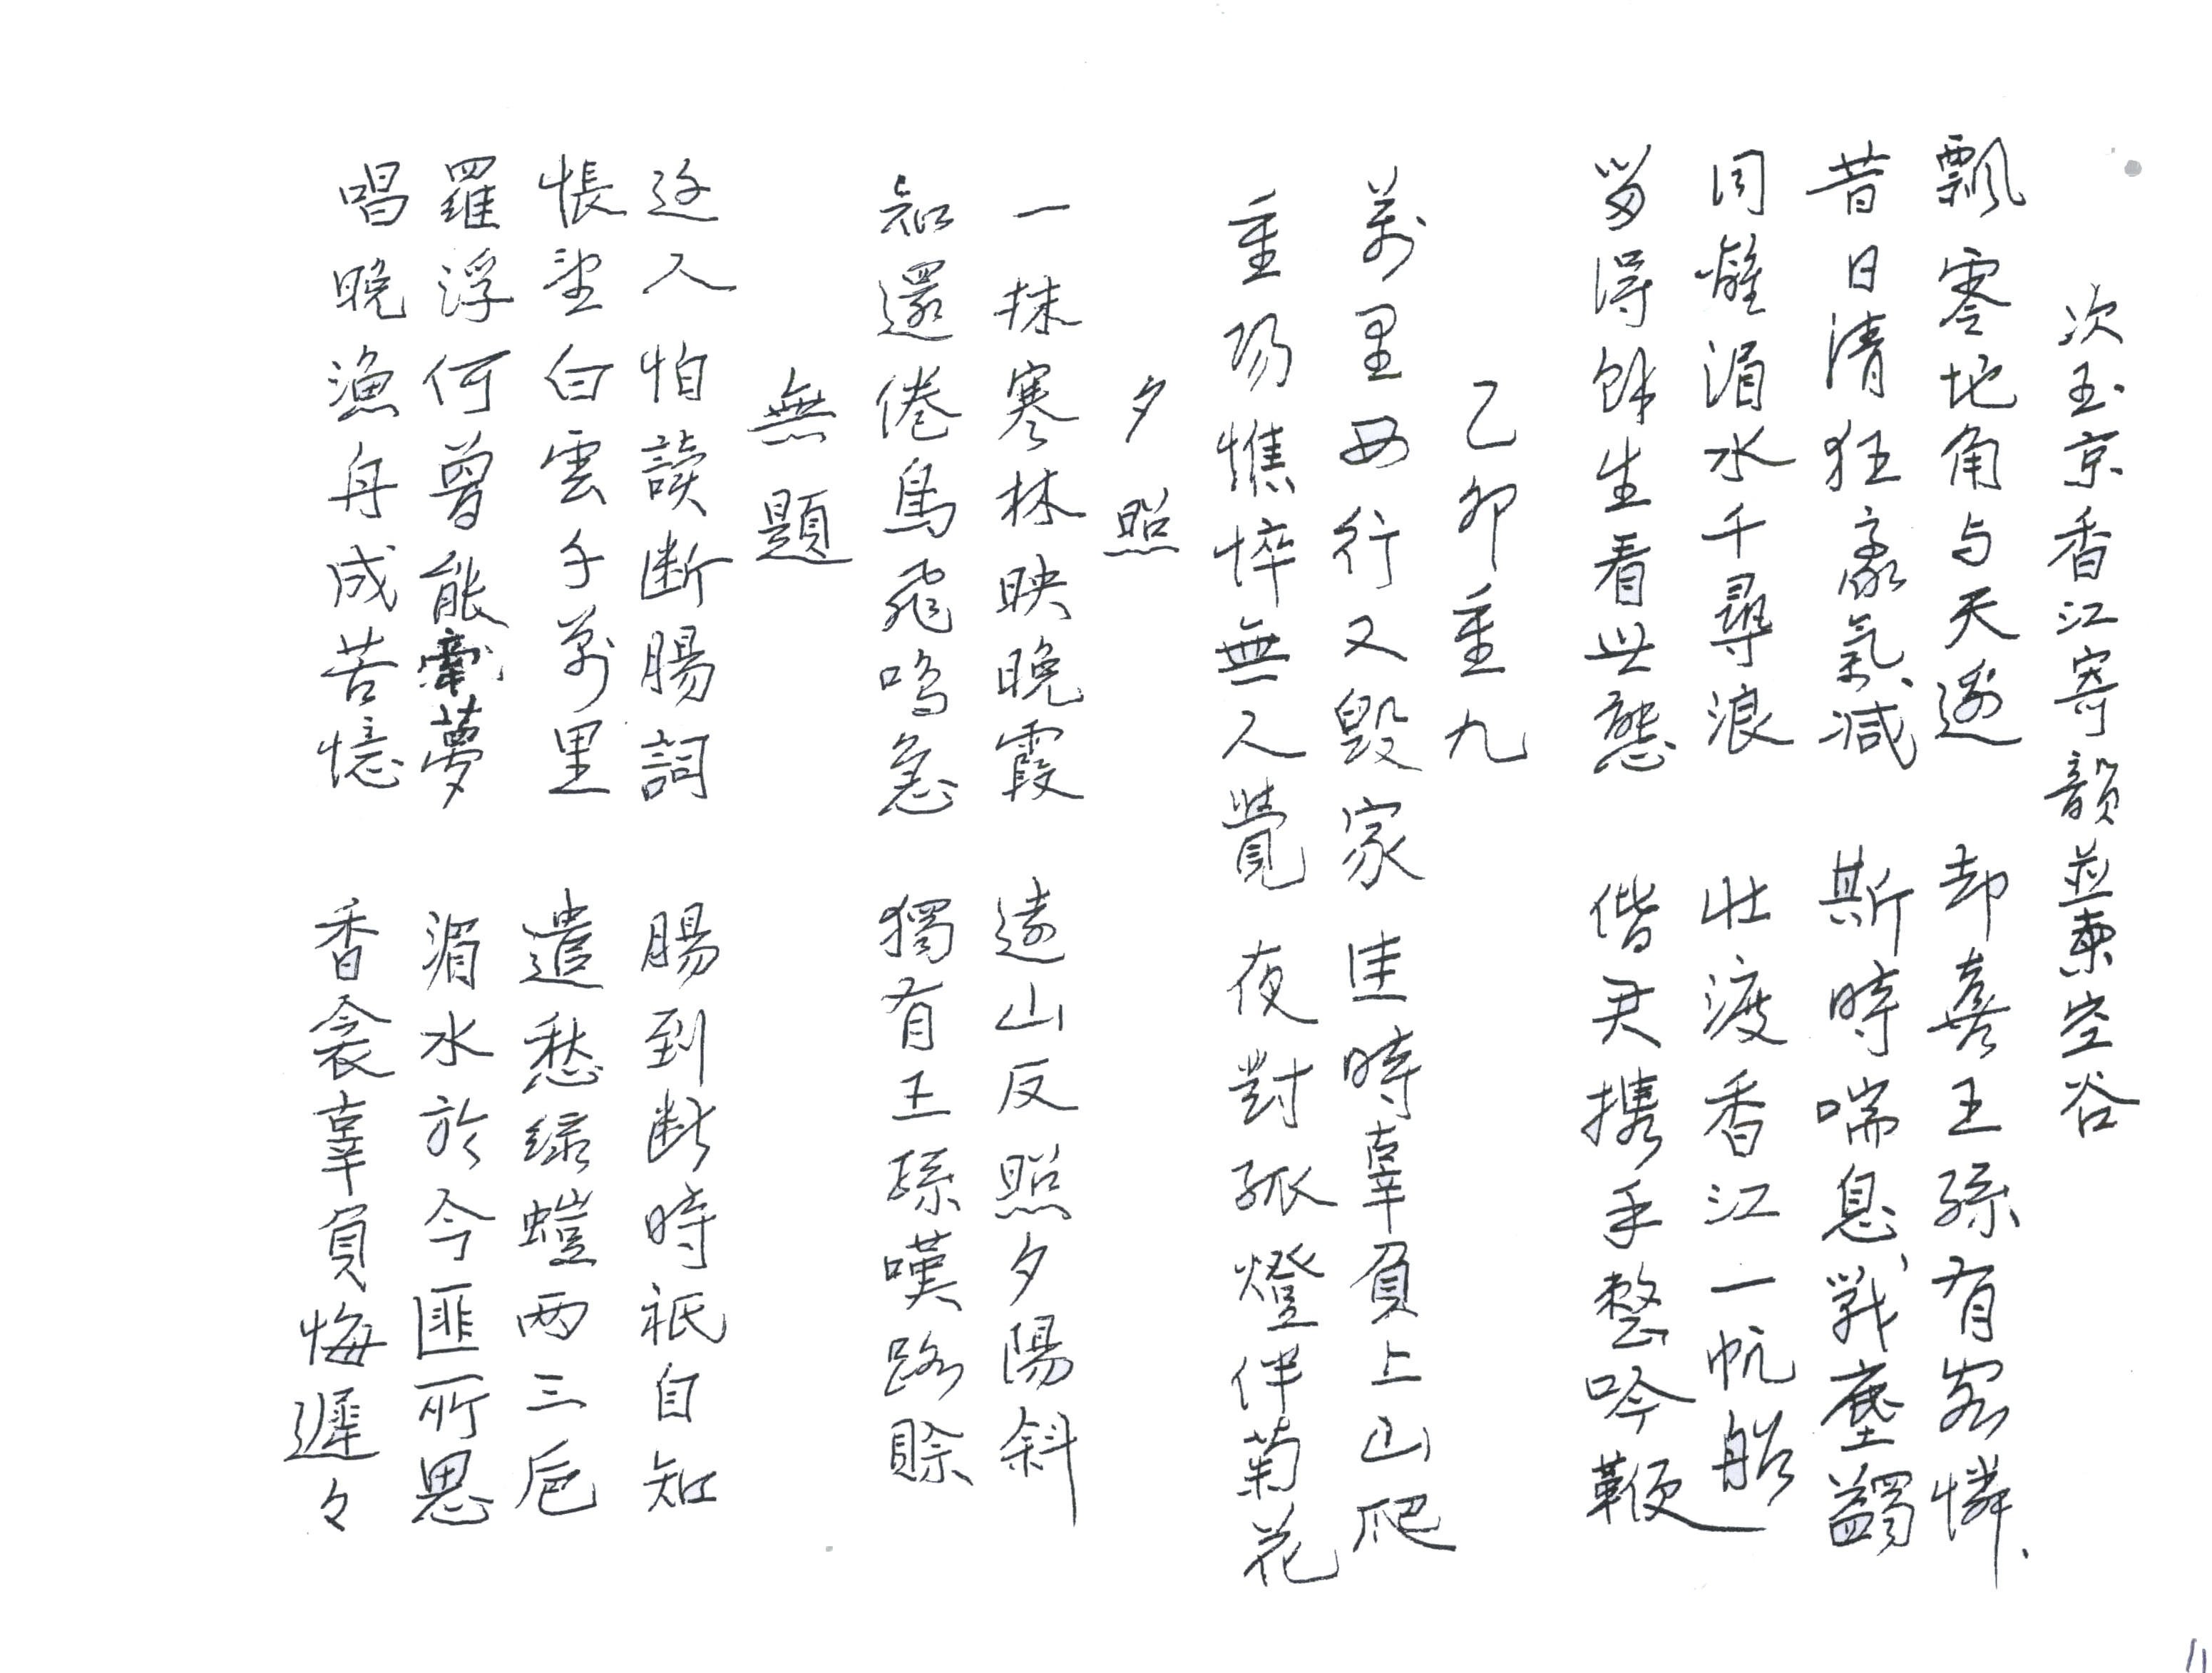 次玉京香江寄韻並柬空谷
飄零地角与天邊 却喜王孫有客憐
昔日清狂豪氣减 斯時喘息戰塵蠲
同 湄水千尋浪 壮渡香江一帆船
留得餘生看世態 偕君携手整吟鞭
乙卯重九
萬里毋行又毁家 佳時辜負上山爬
重陽憔悴無人覺 夜對孤燈伴菊花
夕照
一抹寒林映晚霞 遠山反照夕陽斜
知還倦鳥飛鳴急 獨有王孫嘆路賒
無題
近人怕讀断腸詞 腸到断時祇自知
悵望白雲千萬里 遣愁绿螘两三卮
羅浮何曾能牽夢 湄水於今匪所思
唱晚漁舟成苦憶 香衾辜負悔遲々
11